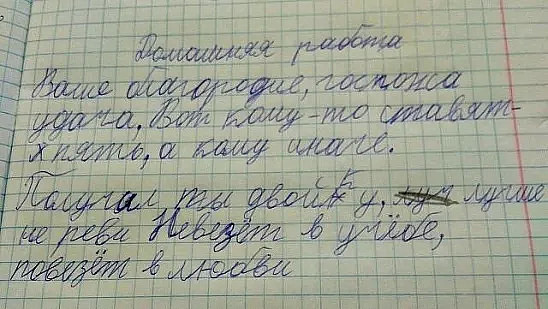 Домашняя работа
Ваше благородие, госпожа
удача, Вот кому-то ставят-
х пять, а кому иначе.
Получил ты двойку, лучше
не реви Невезёт в учёбе,
повезёт в любви